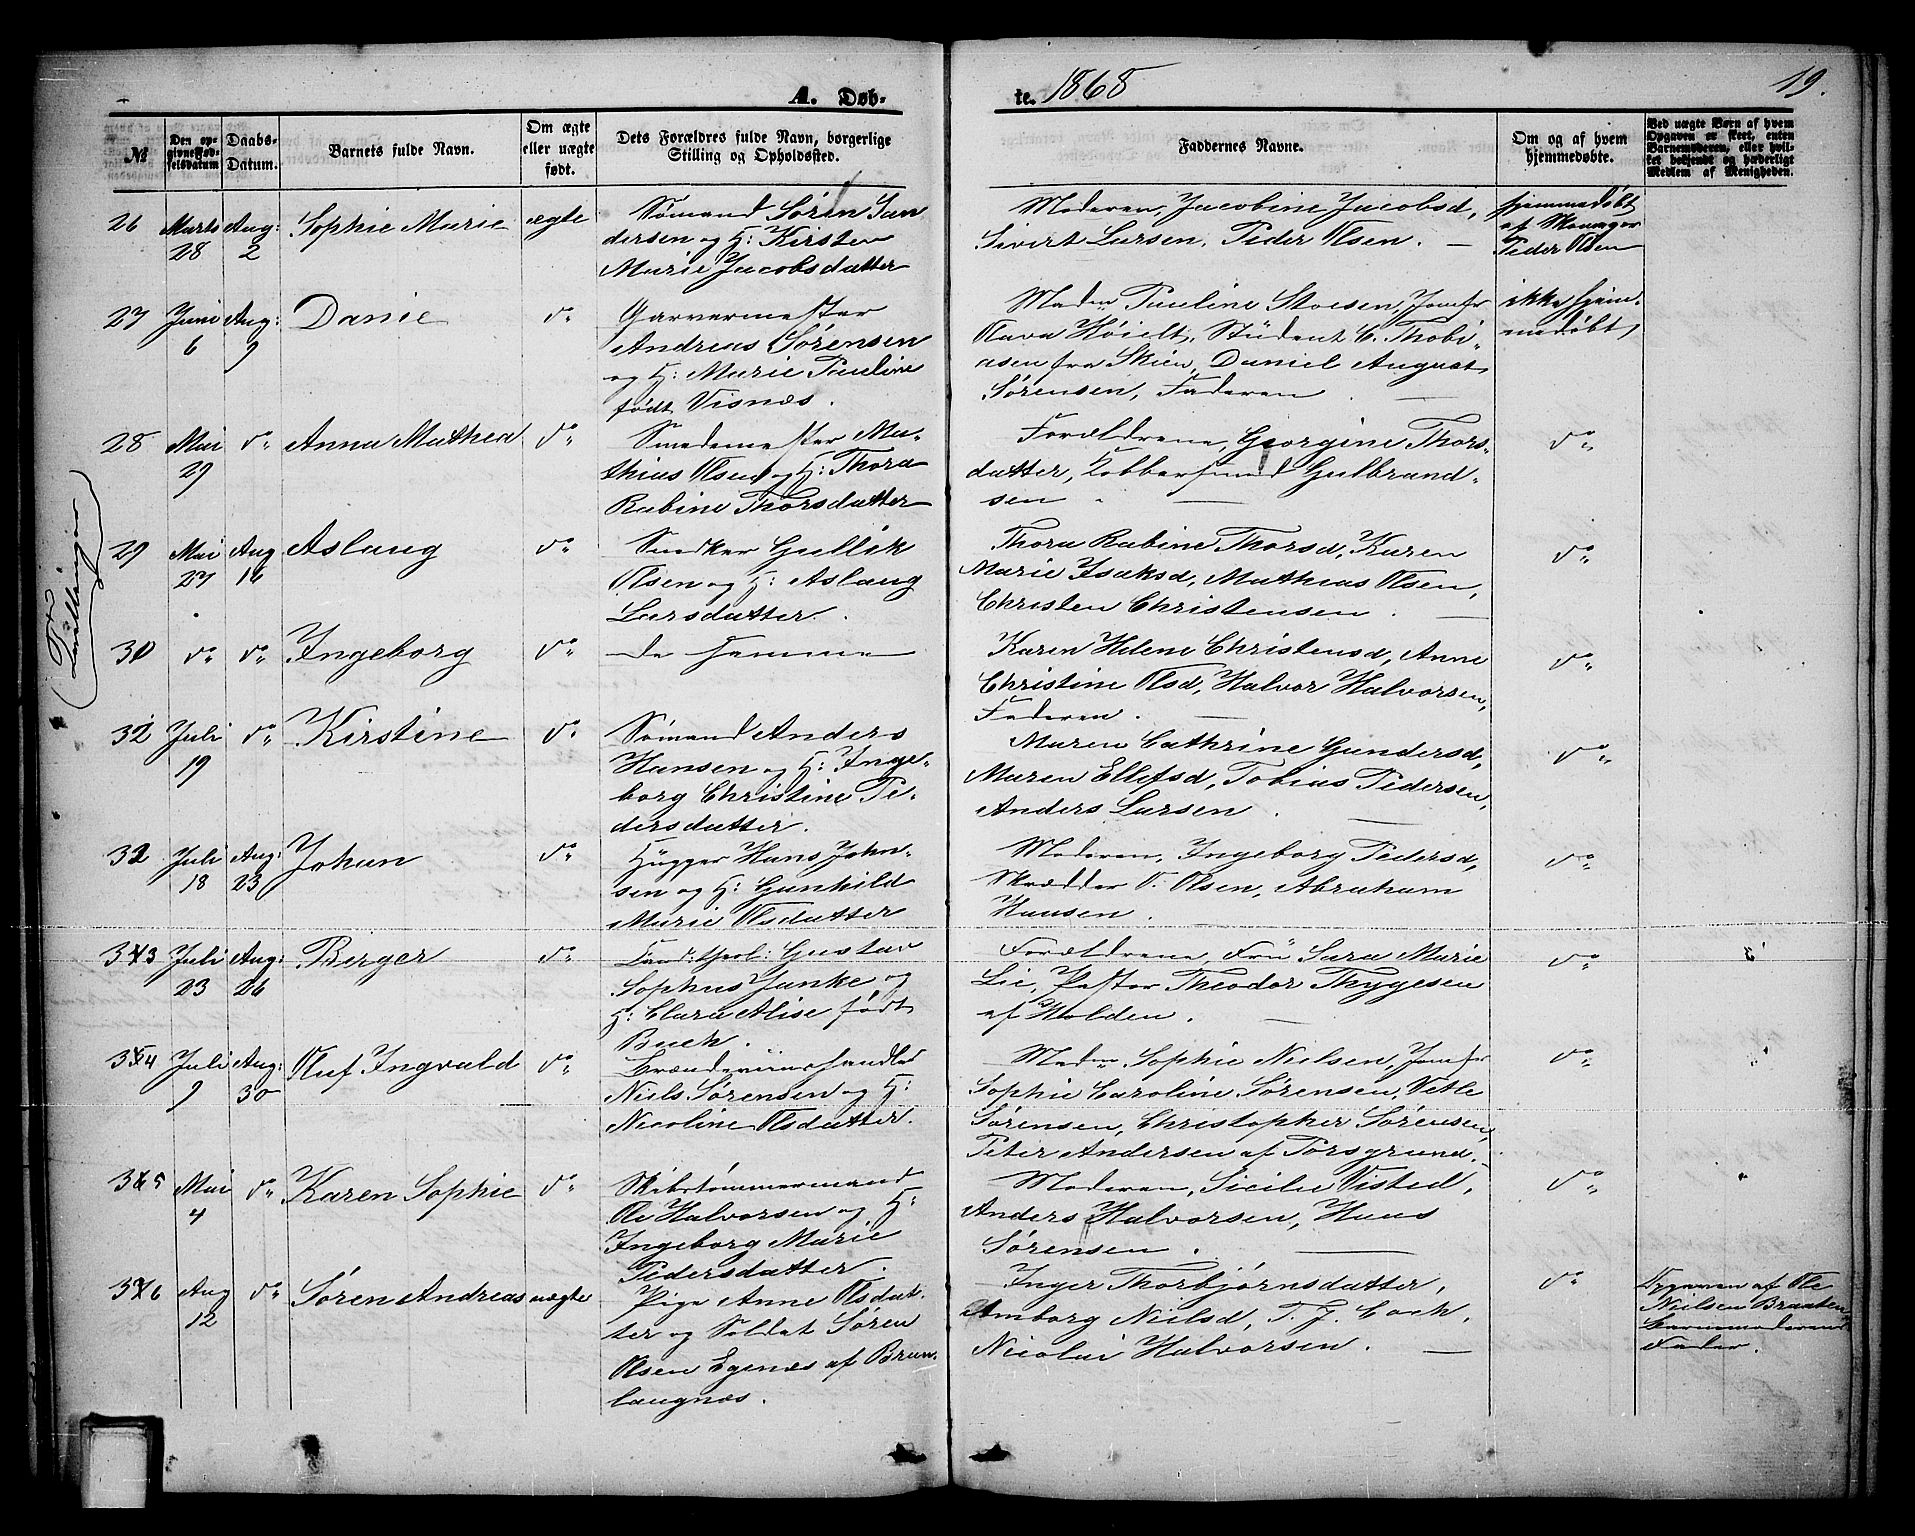 A. Døb-
te. 1868
19.
№
Den op-
givne Fød-
selsdatum
Daabs-
Datum.
Barnets fulde Navn.
Om ægte
eller uægte
født.
Dets Forældres fulde Navn, borgerlige
Stilling og Opholdssted.
Faddernes Navne.
Om og af hvem
hjemmedøbte.
Ved uægte Børn af hvem
Opgaven er skeet, enten
Barnemoderen, eller hvil-
ket bekjendt og hæderligt
Medlem af Menigheden.
26
Marts
28
Aug:
2
Sophie Marie
ægte
Sømand Søren An
dersen og H: Kirsten
Marie Jacobsdatter
Moderen, Jacobine Jacobsd,
Sivert Larsen, Peder Olsen.
hjemmedøbt
af
Peder Olsen
27
Juni
6
Aug:
9
Danie
do
Garvermester
Andreas Sørensen
og H: Marie Pauline
født Visnæs.
Madm Pauline Stoesen, Jomfr
Olava Høielt, Student C. Thobi-
asen fra Skien, Daniel August
Sørensen, Faderen
ikke hjem-
medøbt
28
Mai
29
do
Anna Mathea
do
Smedemester Ma-
thias Olsen og H: Thora
Rabine Thorsdatter
Forældrene, Georgine Thors-
datter, Kobbersmed Gulbrand-
sen
do
Tvillinger
29
Mai
27
Aug
16
Aslaug
do
Snedker Gullik
Olsen og H: Aslaug
Larsdatter.
Thora Rabine Thorsd, Karen
Marie Isaksd, Mathias Olsen,
Christen Christensen
do
30
do
do
Ingeborg
do
de samme
Karen Helene Christensd, Anne
Christine Olsd, Halvor Halvorsen,
Faderen.
do
32
Juli
19
do
Kirstine
do
Sømand Anders
Hansen og H: Inge-
borg Christine Pe-
dersdatter.
Maren Cathrine Gundersd,
Maren Ellefsd, Tobias Pedersen,
Anders Larsen
do
32
Juli
18
Aug:
23
Johan
do
Hugger Hans John-
sen og H: Gunhild
Marie Olsdatter
Moderen, Ingeborg Pedersd,
Skrædder O. Olsen, Abraham
Hansen.
do
33
Juli
23
Aug:
26
Berger
do
Cand: theol: Gustav
Sophus Janke og
H: Clara Alise født
Buch.
Forældrene, Frü Sara Marie
Lie, Pastor Theodor Thygesen
af Holden.
do
34
Juli
9
Aug:
30
Oluf Ingvald
do
Brændeviinshandler
Niels Sørensen og H:
Nicoline Olsdatter.
Madm Sophie Nielsen, Jomfr
Sophie Caroline Sørensen, Vetle
Sørensen, Christopher Sørensen,
Peter Andersen af Porsgrund.
do
35
Mai
4
do
Karen Sophie
do
Skibstømmermand
Ole Halvorsen og H:
Ingeborg Marie
Pedersdatter.
Moderen, Sicilie Visted,
Anders Halvorsen, Hans
Sørensen.
do
36
Aug
12
do
Søren Andreas
uægte
Pige Anne Olsdat-
ter og Soldat Søren
Olsen Egenæs af Brun-
laugnæs.
Inger Thorbjørnsdatter,
Amborg Nielsd, T. J. Cock,
Nicolai Halvorsen.
do
Opgaven af Ole
Nielsen Braaten
Barnemoderens
Fader.